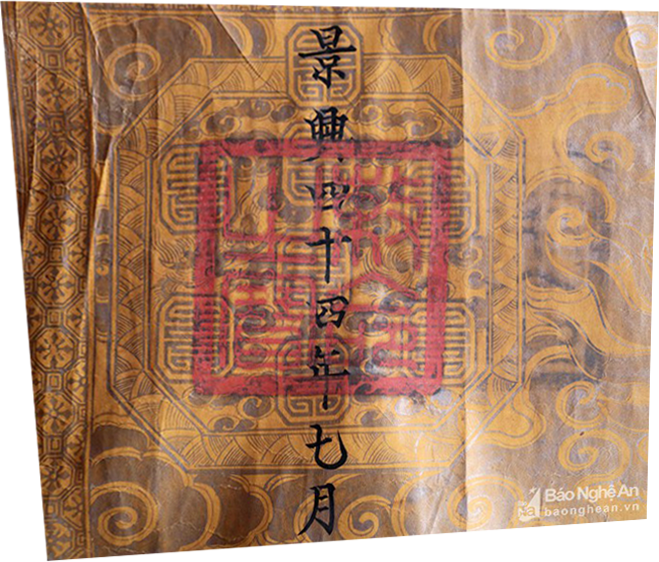 景興四十四年七月
Báo Nghệ An
baonghean.vn